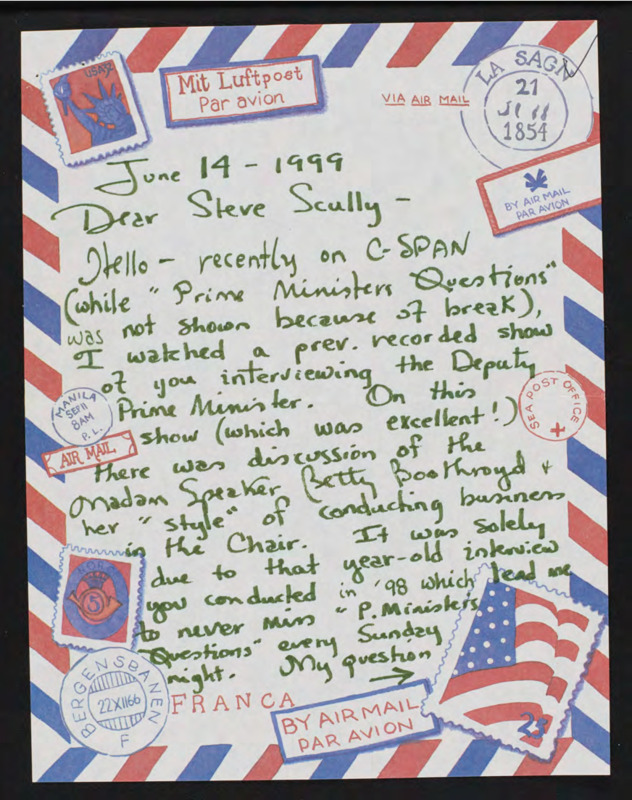 USA
Mit Luftpost
Par avion
VIA AIR MAIL
LA SAGN
21
1854
BY AIR MAIL
PAR AVION
June 14 - 1999
Dear Steve Scully -
Hello - recently on C-SPAN
(while "Prime Ministers Questions"
was not shown because of break),
I watched a prev. recorded show
of you interviewing the Deputy
Prime Minister. On this
show (which was excellent!)
there was discussion of the
Madam Speaker, Betty Boothroyd +
her "style" of conducting business
in the Chair. It was solely
due to that year-old interview
you conducted in '98 which lead me
to never miss "P. Ministers
Questions" every Sunday
night. My question →
MANILA
SEP 11
8AM
P. L.
AIR MAIL
SEA POST OFFICE
NORGE
5
BERGENSBANEN
22XII66
F
FRANCA
BY AIR MAIL
PAR AVION